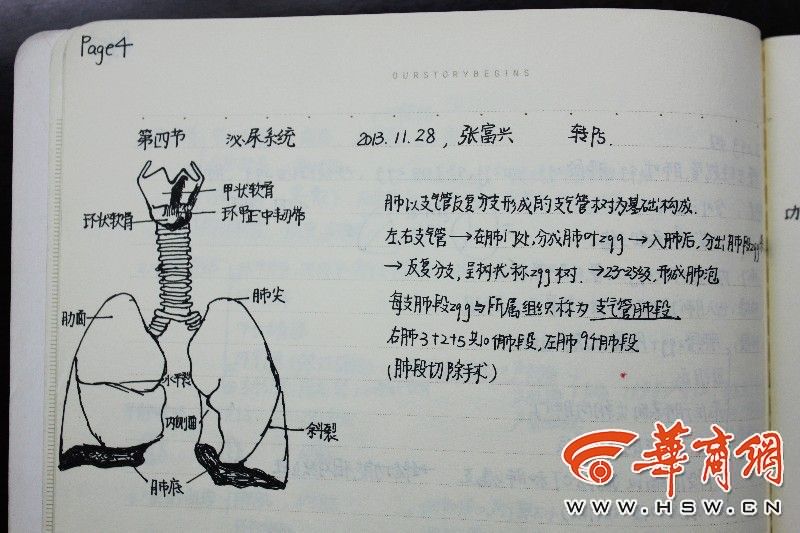 Page4
OURSTORYBEGINS
第四节 泌尿系统 2013.11.28, 张富兴 转P5.
甲状软骨
环状软骨 环甲正中韧带
肺以支气管反复分支形成的支气管树为基础构成.
左、右支气管→在肺门处,分成肺叶zgg→入肺后,分出肺段zgg
→反复分支,呈树状称zgg树.→23-25级,形成肺泡
每支肺段zgg与所属组织称为支气管肺段.
右肺3+2+5共10个肺段,左肺9个肺段
(肺段切除手术)
肺尖
肋面
水平裂
内侧面
斜裂
肺底
華商網
WWW.HSW.CN